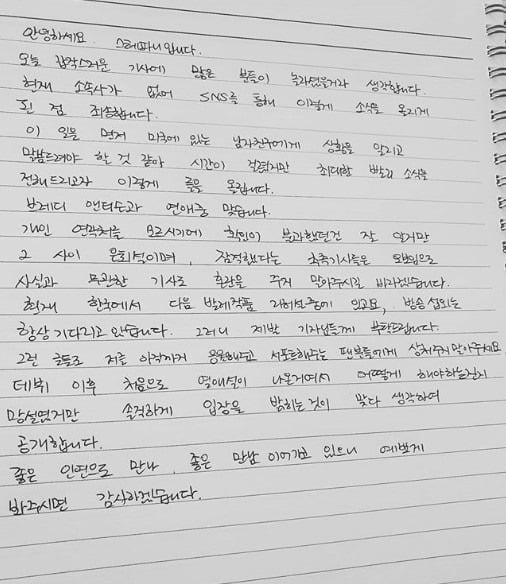 안녕하세요. 스테파니입니다.
오늘 갑작스러운 기사에 많은 분들이 놀라셨을거라 생각합니다.
현재 소속사가 없어 SNS를 통해 이렇게 소식을 올리게
된 점 죄송합니다.
이 일을 먼저 미국에 있는 남자친구에게 상황을 알리고
말씀드려야 할 것 같아 시간이 걸렸지만 최대한 빨리 소식을
전해드리고자 이렇게 글을 올립니다.
브레디 앤더슨과 연애중 맞습니다.
개인 연락처를 모르시기에 확인이 불가했던건 잘 알지만
그 사이 은퇴설이며, 잠적했다는 추측기사들은
사실과 무관한 기사로 혼란을 주지 말아주시길 바라겠습니다.
현재 한국에서 다음 발레작품 리허설중에 있고요, 방송 섭외는
항상 기다리고 있습니다. 그러니 제발 기자님들께 부탁드립니다.
그런 글들로 저를 아직까지 응원해주고 서포트해주는 팬분들에게 상처주지 말아주세요.
데뷔 이후 처음으로 열애설이 나온거여서 어떻게 해야하는건지
망설였지만 솔직하게 입장을 밝히는것이 맞다 생각하여
공개합니다.
좋은 인연으로 만나, 좋은 만남 이어가고 있으니 예쁘게
봐주시면 감사하겠습니다.